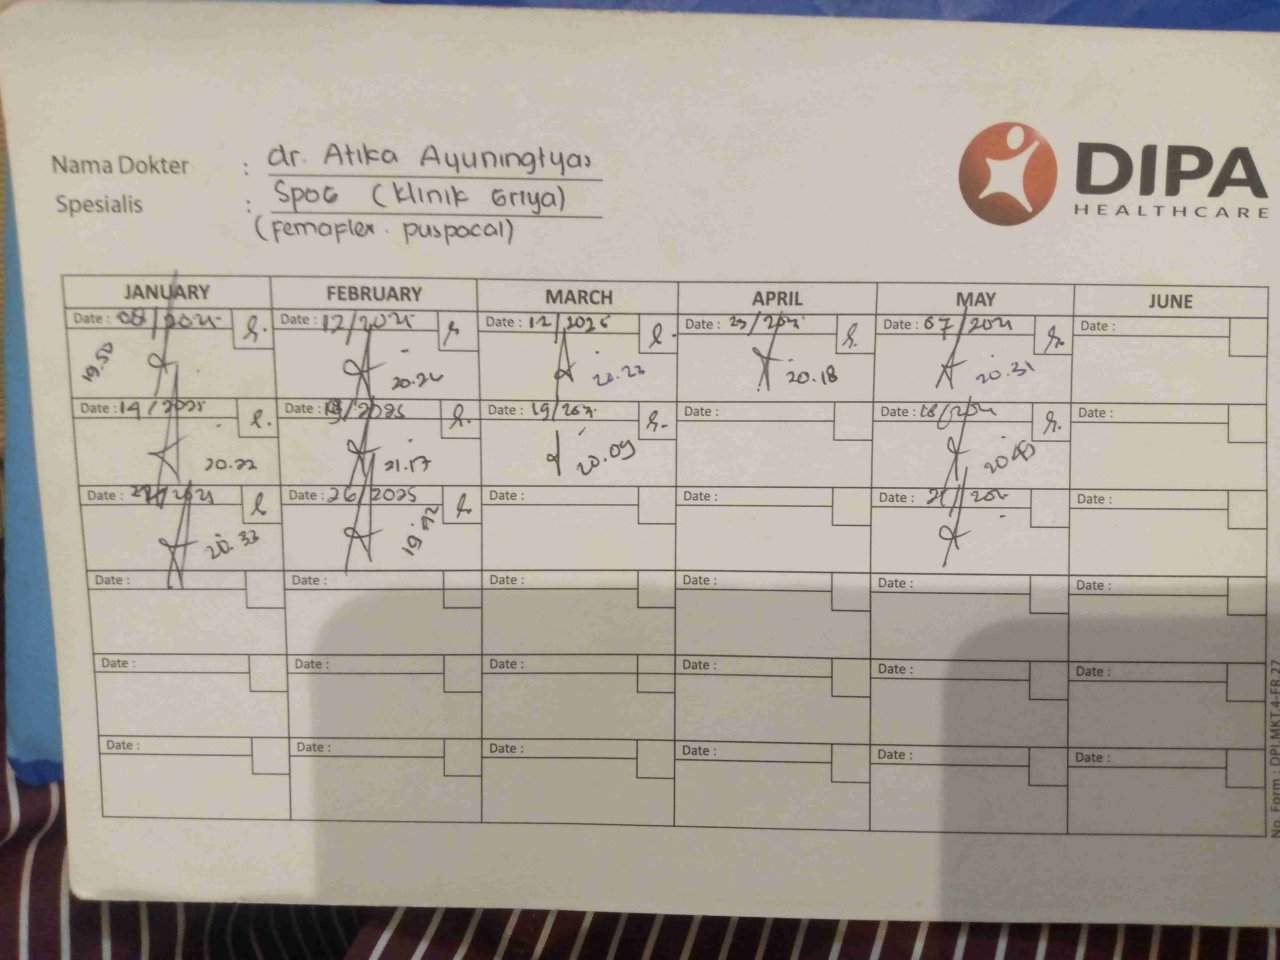 DIPA
HEALTHCARE
Nama Dokter : dr. Atika Ayuningtyas
Spesialis : SpOG (Klinik Griya)
(Femaflex. puspocal)
JANUARY FEBRUARY MARCH APRIL MAY JUNE
Date : 08/2025 Date : 12/2025 Date : 12/2025 Date : 23/202 Date : 07/2025 Date :
19.50 20.26 20.22 20.18 20.31
Date : 14/2025 Date : /2025 Date : 19/202 Date : Date : Date :
20.22 21.17 20.09
Date : Date : 26/2025 Date : Date : Date : Date :
20.33
Date : Date : Date : Date : Date : Date :
Date : Date : Date : Date : Date : Date :
Date : Date : Date : Date : Date : Date :
No. Form : DPI.MKT.4-FR.27